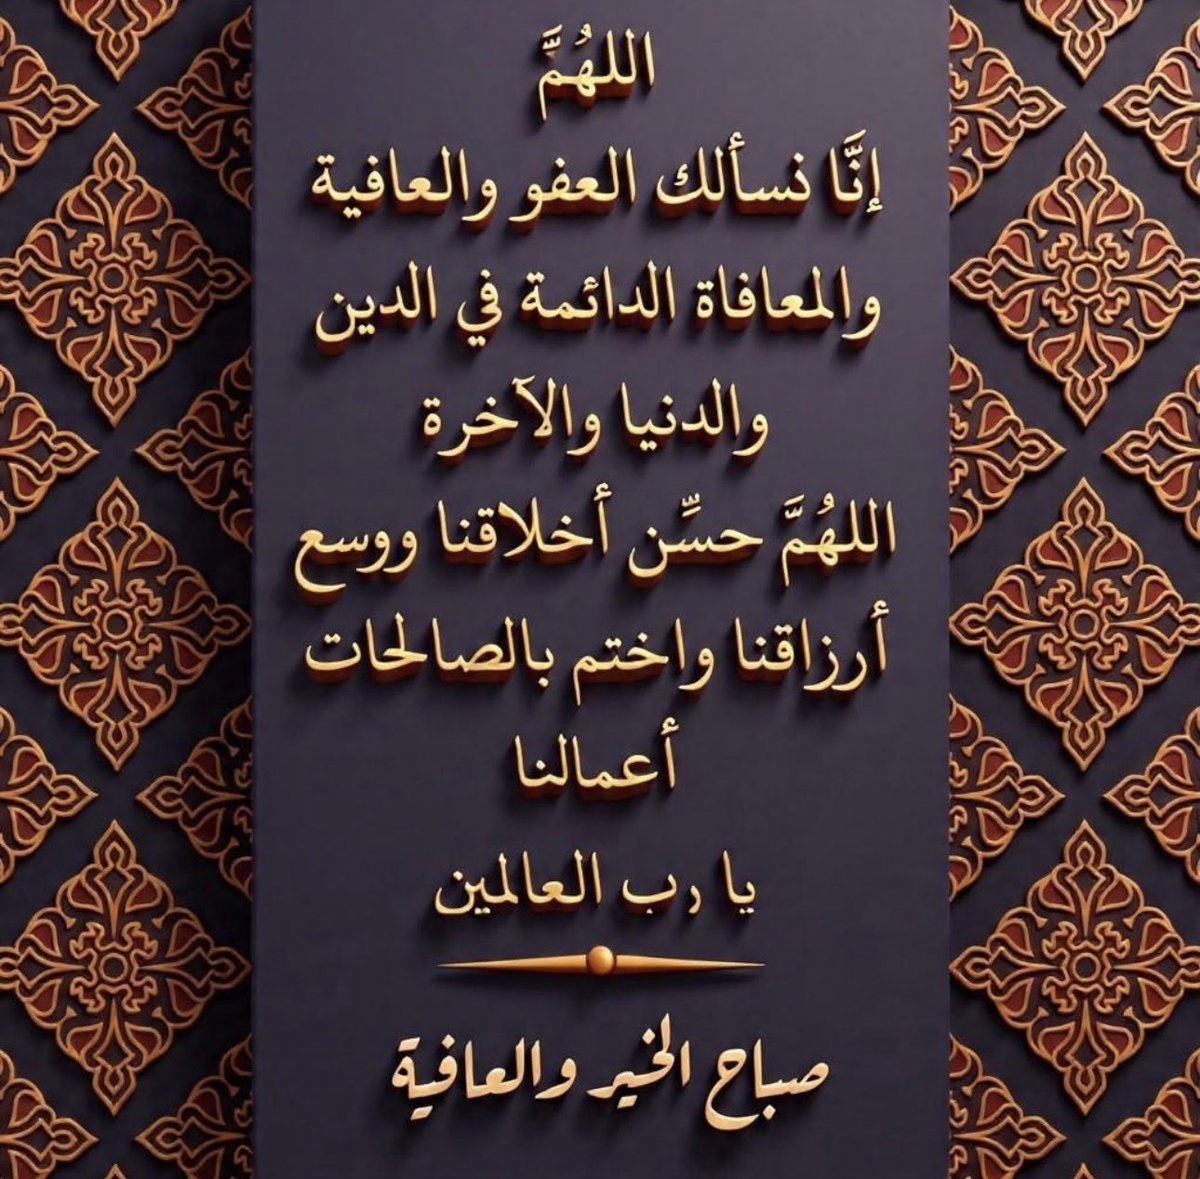 اللهُمَّ
إنَّا نسألك العفو والعافية
والمعافاة الدائمة في الدين
والدنيا والآخرة
اللهُمَّ حسِّن أخلاقنا ووسع
أرزاقنا واختم بالصالحات
أعمالنا
يا رب العالمين
صباح الخير والعافية